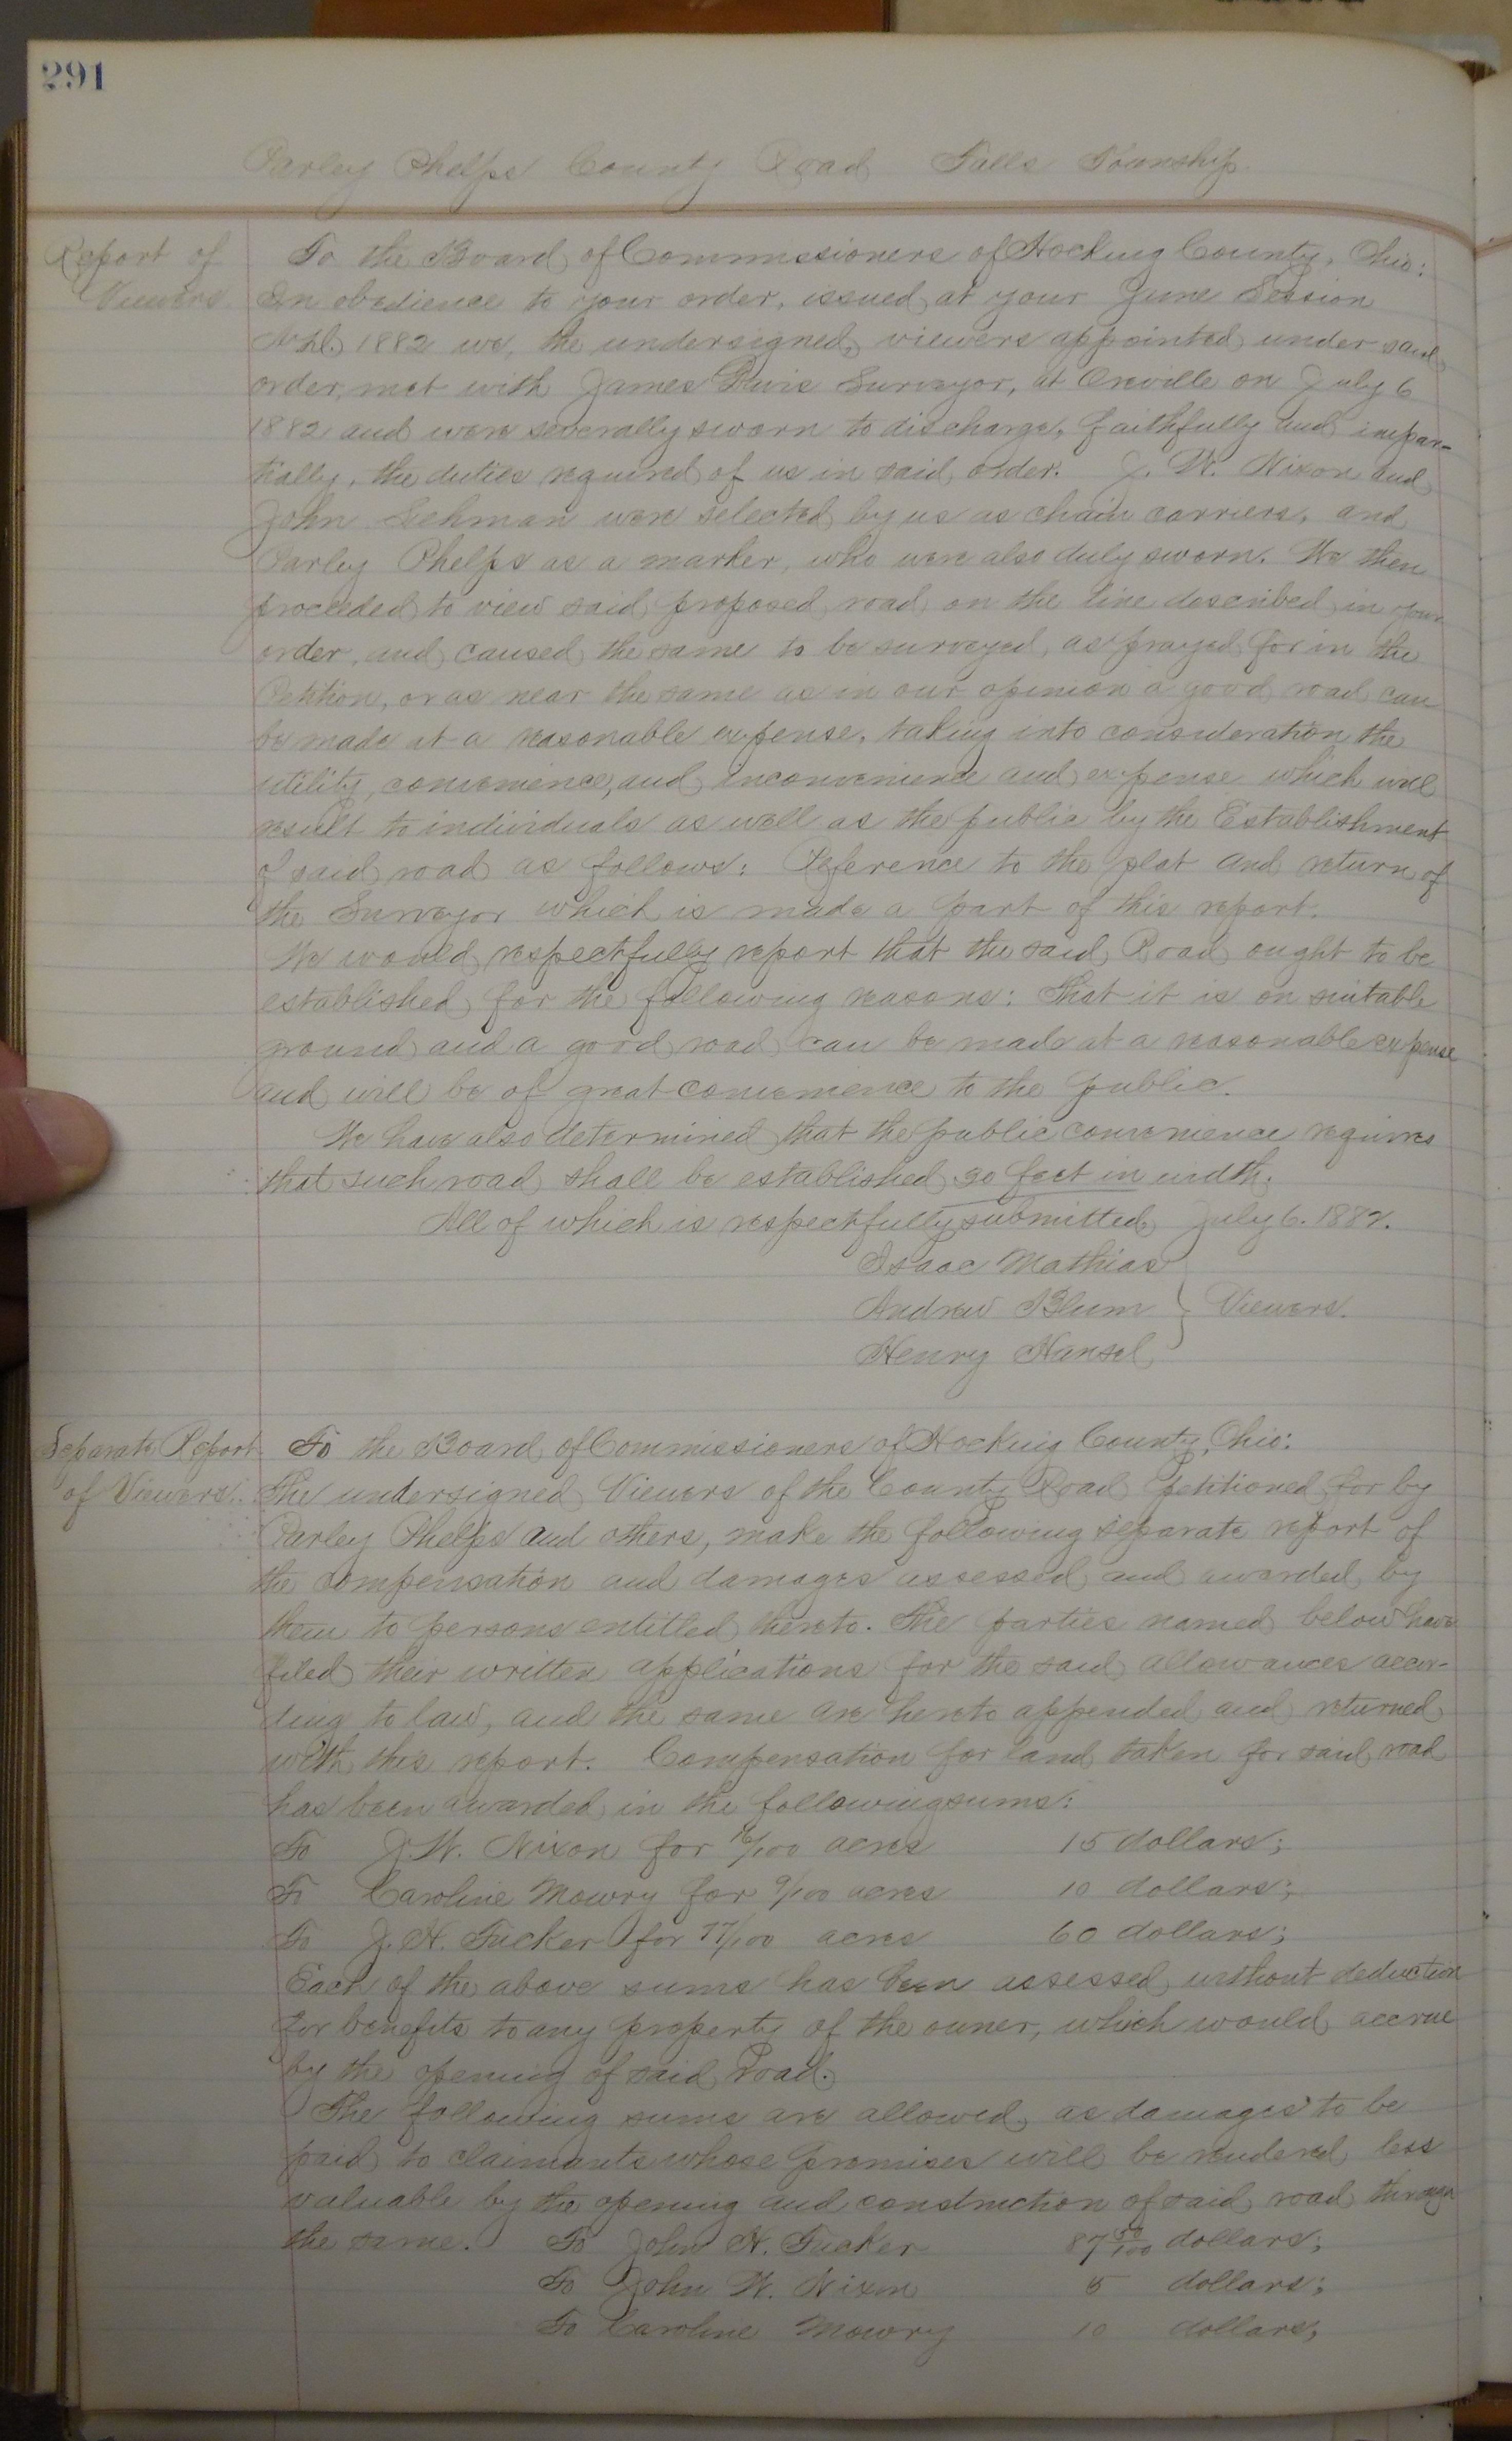 291
Parley Phelps County Road Falls Township.
Report of
Viewers.
To the Board of Commissioners of Hocking County, Ohio:
In obedience to your order, issued at your June Session
A.D. 1882 we, the undersigned, viewers appointed under said
order, met with James Davis Surveyor, at Oreville on July 6
1882 and were severally sworn to discharge, faithfully and impar-
tially, the duties required of us in said order. J. W. Nixon and
John Lehman were selected by us as chain carriers, and
Parley Phelps as a marker, who were also duly sworn. We then
proceeded to view said proposed road on the line described in your
order, and caused the same to be surveyed, as prayed for in the
Petition, or as near the same as in our opinion a good road can
be made at a reasonable expense, taking into consideration the
utility, convenience, and inconvenience and expense which will
result to individuals as well as the public by the Establishment
of said road as follows: Reference to the plat and return of
the Surveyor which is made a part of this report.
We would respectfully report that the said Road ought to be
established for the following reasons: That it is on suitable
ground and a good road can be made at a reasonable expense
and will be of great convenience to the public.
We have also determined that the public convenience requires
that such road shall be established 30 feet in width.
All of which is respectfully submitted July 6. 1882.
Isaac Mathias
Andrew Blum } Viewers.
Henry Hansel
Separate Report
of Viewers.
To the Board of Commissioners of Hocking County, Ohio:
The undersigned Viewers of the County Road petitioned for by
Parley Phelps and others, make the following separate report of
the compensation and damages assessed and awarded by
them to persons entitled thereto. The parties named below have
filed their written applications for the said allowances accor-
ding to law, and the same are hereto appended and returned
with this report. Compensation for land taken for said road
has been awarded in the following sums:
To J. W. Nixon for 16/100 acres 15 dollars;
To Caroline Mowry for 9/100 acres 10 dollars;
To J. H. Tucker for 77/100 acres 60 dollars;
Each of the above sums has been assessed without deduction
for benefits to any property of the owner, which would accrue
by the opening of said Road.
The following sums are allowed as damages to be
paid to claimants whose premises will be rendered less
valuable by the opening and construction of said road through
the same. To John H. Tucker 87 50/100 dollars;
To John W. Nixon 5 dollars;
To Caroline Mowry 10 dollars;